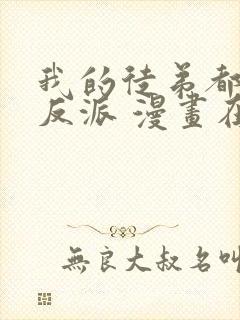 我的徒弟都
反派 漫畫在
無良大叔名叫